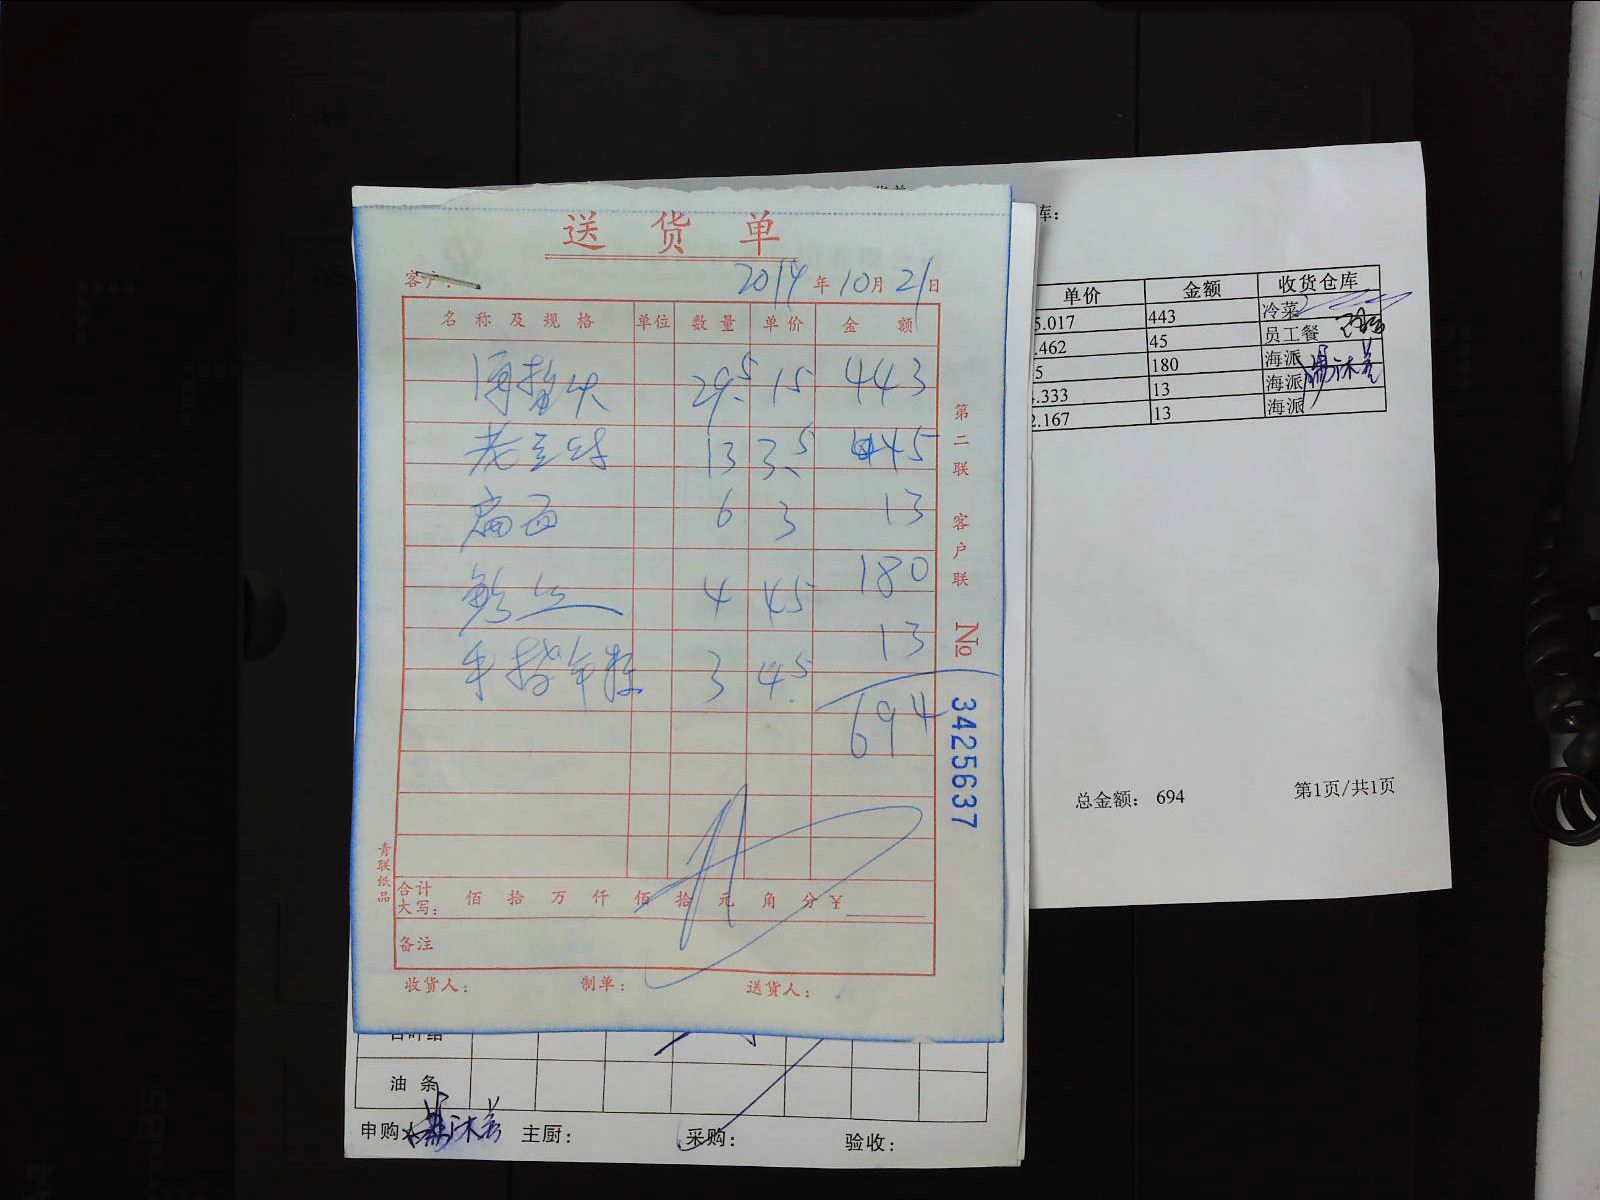 送货单
客户:
2014年10月21日
名称及规格 单位 数量 单价 金额
29.5 15 443
13 3.5 45
扁面 6 3 13
4 45 180
手 3 4.5 13
694
合计大写: 佰 拾 万 仟 佰 拾 元 角 分 ¥
备注
收货人: 制单: 送货人:
第二联 客户联
No 3425637
青联纸品
库:
单价 金额 收货仓库
5.017 443 冷菜
.462 45 员工餐
5 180 海派
.333 13 海派
2.167 13 海派
总金额: 694 第1页/共1页
油条
申购人 主厨: 采购: 验收: